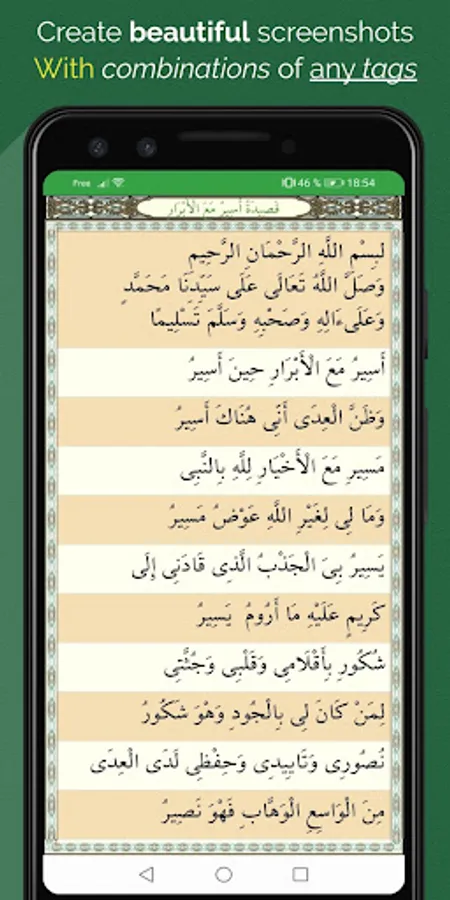 Create beautiful screenshots
With combinations of any tags
Free 46 % 18:54
قَصِيدَةُ أَسِيرُ مَعَ الْأَبْرَارِ
لبِسْمِ اللَّهِ الرَّحْمَانِ الرَّحِيمِ
وَصَلَّ اللَّهُ تَعَالَى عَلَى سَيِّدِنَا مُحَمَّدٍ
وَعَلَىءَالِهِ وَصَحْبِهِ وَسَلَّمَ تَسْلِيمًا
أَسِيرُ مَعَ الْأَبْرَارِ حِينَ أَسِيرُ
وَظَنَّ الْعِدَى أَنِّى هُنَاكَ أَسِيرُ
مَسِيرِ مَعَ الْأَخْيَارِ لِلَّهِ بِالنَّبِى
وَمَا لِى لِغَيْرِ اللَّهِ عَوْضُ مَسِيرُ
يَسِيرُ بِىَ الْجَذْبُ الَّذِى قَادَنِى إِلَى
كَرِيمٍ عَلَيْهِ مَا أَرُومُ يَسِيرُ
شُكُورِ بِأَقْلَامِى وَقَلْبِى وَجُثَّتِى
لِمَنْ كَانَ لِى بِالْجُودِ وَهْوَ شَكُورُ
نُصُورِى وَتَايِيدِى وَحِفْظِى لَدَى الْعِدَى
مِنَ الْوَاسِعِ الْوَهَّابِ فَهْوَ نَصِيرُ